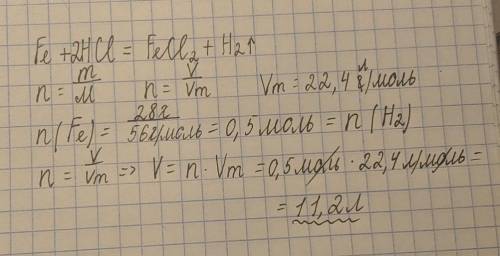 Fe + 2HCl = FeCl₂ + H₂↑
n = m/M n = V/Vm Vm = 22,4 л/моль
n(Fe) = 28г/56г/моль = 0,5 моль = n(H₂)
n = V/Vm => V = n · Vm = 0,5 моль · 22,4 л/моль =
= 11,2 л